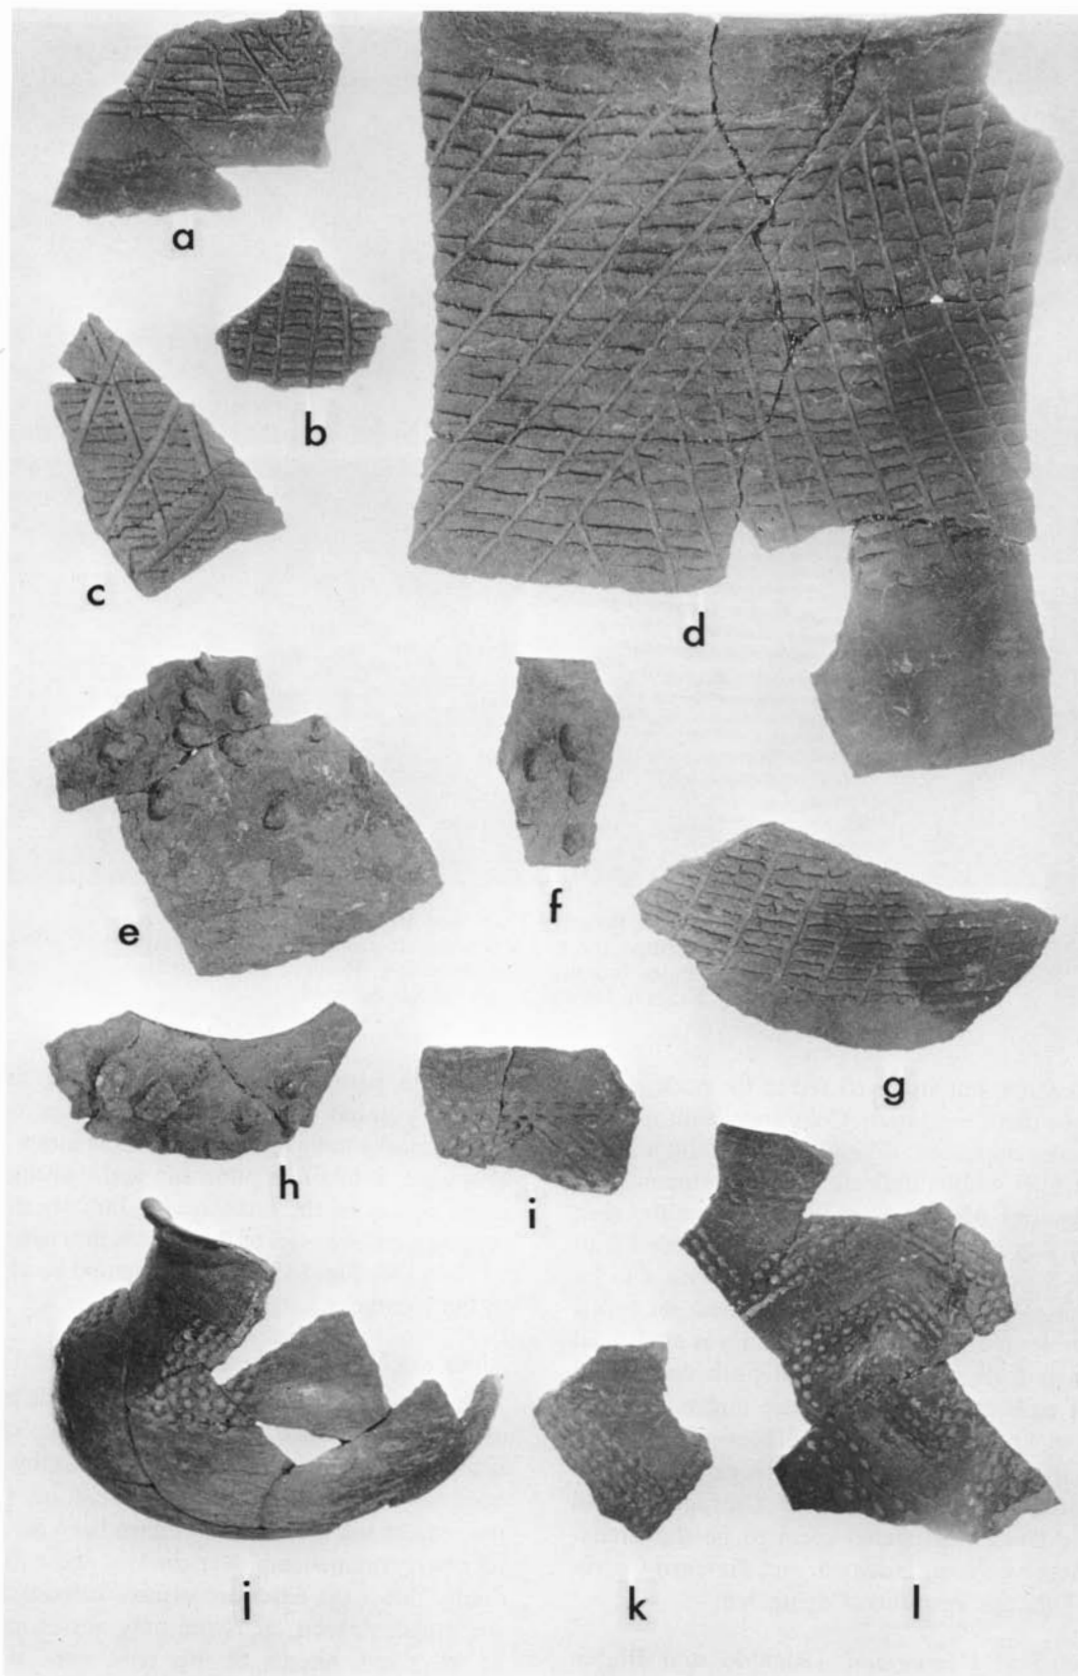 a
b
c
d
e
f
g
h
i
j
k
l